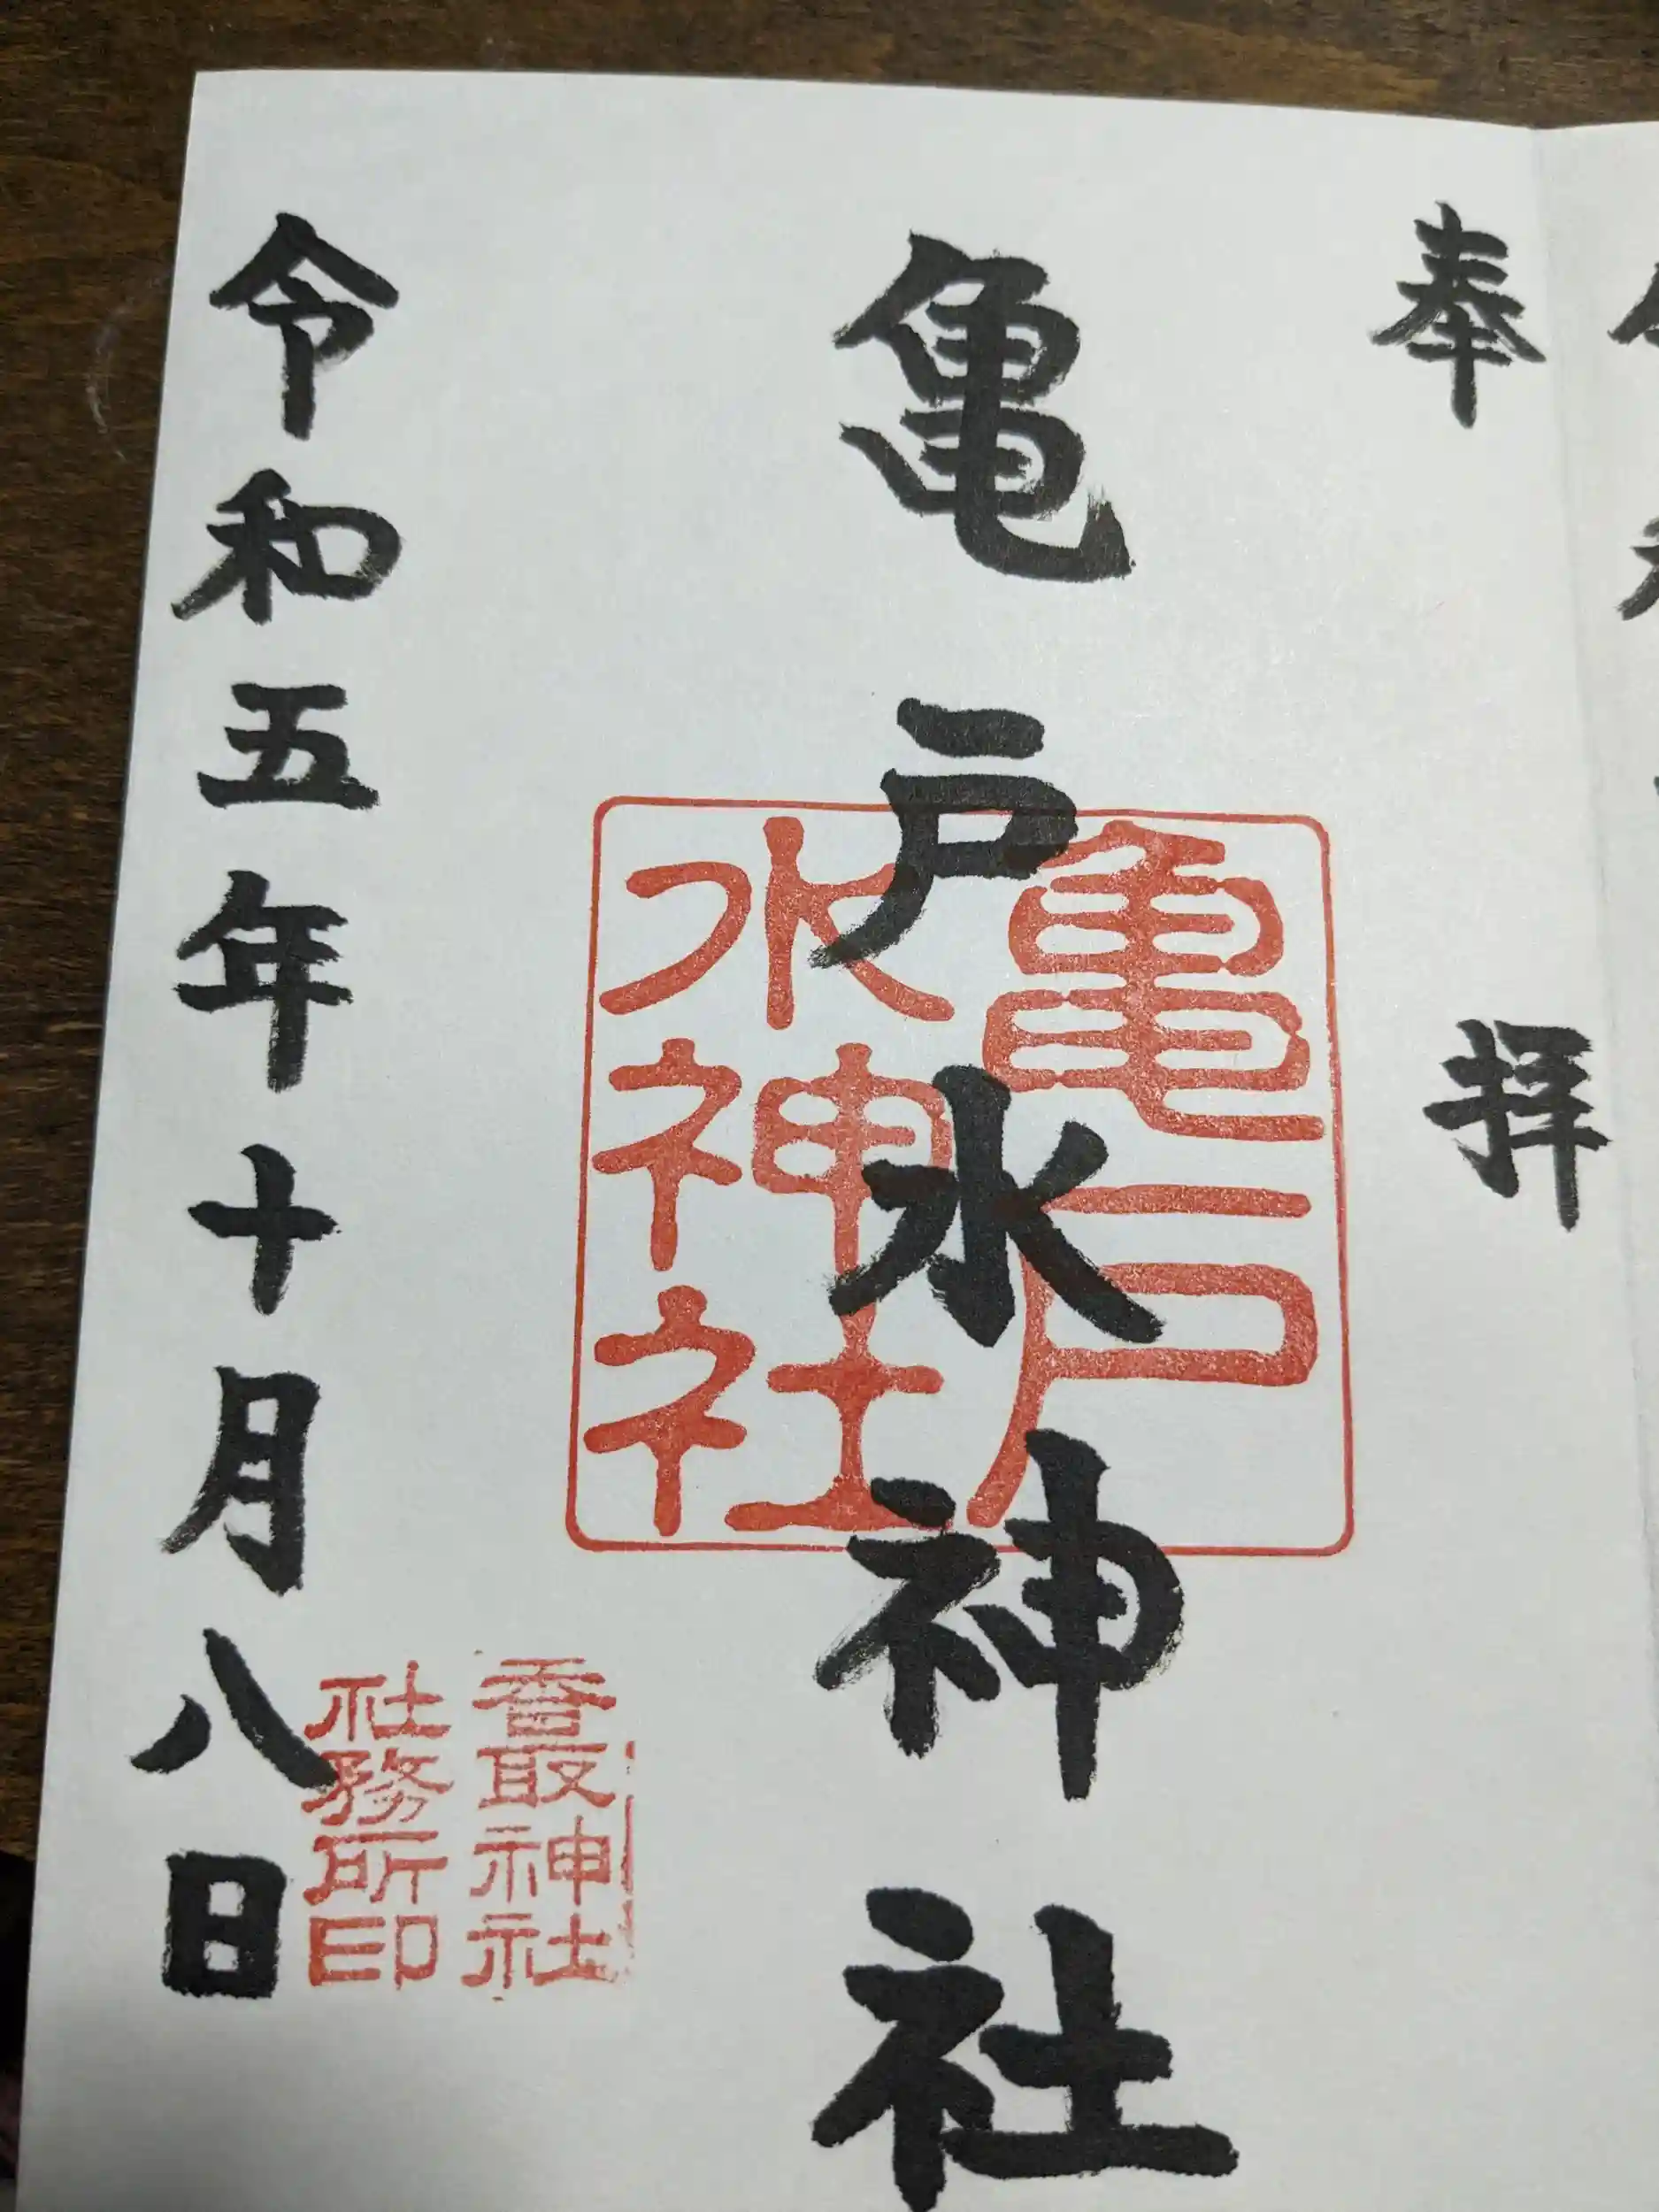 奉拝
亀戸水神社
亀戸
水神社
令和五年十月八日
香取神社
社務所印